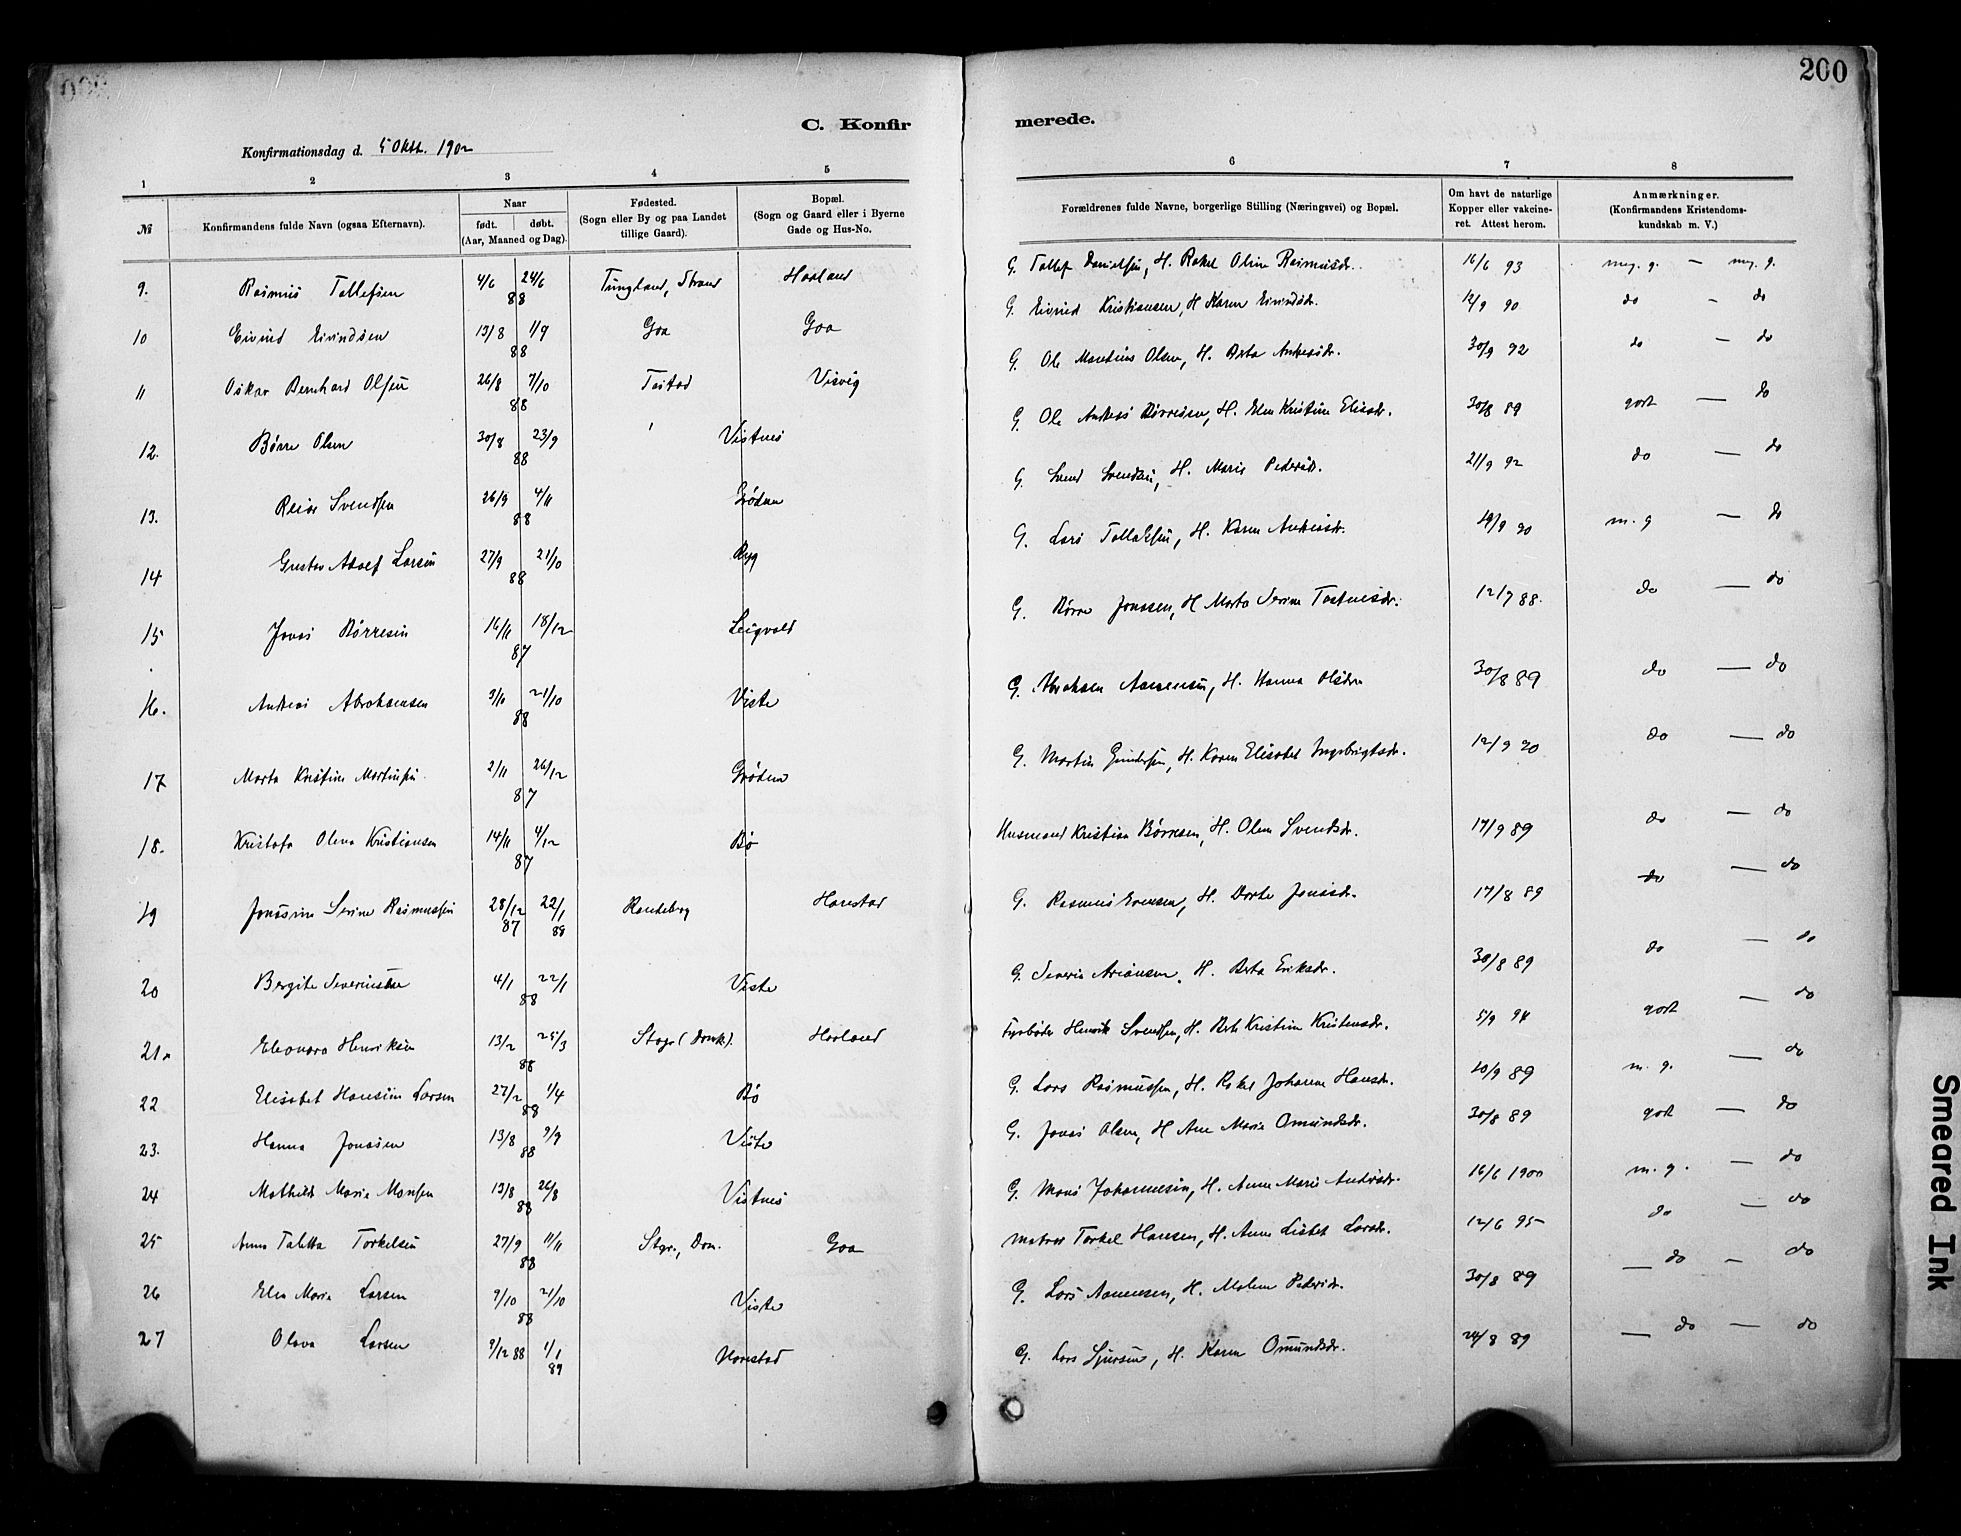 200
C. Konfir merede.
Konfirmationsdag d. 5 Okt. 1902
1 2 3 4 5 6 7 8
№ Konfirmandens fulde Navn (ogsaa Efternavn). Naar født. døbt. (Aar, Maaned og Dag). Fødested. (Sogn eller By og paa Landet tillige Gaard). Bopæl. (Sogn og Gaard eller i Byerne Gade og Hus-No. Forældrenes fulde Navne, borgerlige Stilling (Næringsvei) og Bopæl. Om havt de naturlige Kopper eller vakcineret. Attest herom. Anmærkninger. (Konfirmandens Kristendomskundskab m. V.)
9. Rasmus Tollefsen 4/6 24/6 88 Tungland, Strand Haaland G. Tollef Danielsen, H. Rakel Oline Rasmusdr. 16/6 93 meg. g. — meg. g.
10 Eivind Eivindsen 13/8 1/9 88 Goa Goa G. Eivind Kristiansen, H. Karen Eivindsdr. 12/9 90 do - do
11 Oskar Bernhard Olsen 26/8 7/10 88 Tastad Visvig G. Ole Martinus Olsen, H. Berta Andreasdr. 30/9 92 do — do
12. Børre Olsen 30/8 23/9 88 Vistnes G. Ole Andreas Børresen, H. Elen Kristine Eliasdr. 30/8 89 godt — do
13. Reier Svendsen 26/9 4/11 88 Grødem G. Svend Svendsen, H. Marie Pedersdr. 21/9 92 do — do
14 Gustav Adolf Larsen 27/9 21/10 88 Ryg G. Lars Tollaksen, H. Karen Andreasdr. 19/9 90 m. g — do
15 Jonas Børresen 16/11 18/12 87 Leigvold G. Børre Jonassen, H. Marta Serine Tostensdr. 12/9 88. do — do
16. Andreas Abrahamsen 3/10 21/10 88 Viste G. Abraham Aanensen, H. Hanna Olsdr. 30/8 89 do — do
17 Marta Kristine Martinsen 2/11 26/12 87 Grødem G. Martin Gundersen, H. Karen Elisabet Ingebrigtsdr. 12/9 90 do — do
18. Kristofa Olena Kristiansen 14/11 4/12 87 Bø Husmand Kristian Børresen, H. Olena Svendsdr. 17/9 89 do — do
19 Jonasine Serine Rasmussen 28/12 87 22/1 88 Randeberg Harestad G. Rasmus Evensen, H. Dorte Jonasdr. 17/8 89 do — do
20 Bergite Severinsen 4/1 22/1 88 Viste G. Severin Ariansen, H. Berta Eriksdr. 30/8 89 do — do
21. Eleonora Henriksen 13/2 25/3 88 Stvgr (Domk). Haaland Fyrbøder Henrik Svendsen, H. Berte Kristine Kristensdr. 5/9 94 godt — do
22 Elisabet Hansine Larsen 27/2 1/4 88 Bø G. Lars Rasmussen, H. Rakel Johanne Hansdr. 20/9 89 m. g. — do
23. Hanna Jonassen 13/8 9/9 88 Viste G. Jonas Olsen, H. Ane Marie Omundsdr. 30/8 89 godt — do
24 Mathilde Marie Monsen 13/8 26/8 88 Vistnes G. Mons Johannesen, H. Anne Marie Andersdr. 16/6 1900 m. g. — do
25 Anna Taletta Torkelsen 27/9 11/11 88 Stgr., Dom. Goa Matros Torkel Hansen, H. Anne Lisbet Larsdr. 12/6 95 do — do
26 Elen Marie Larsen 9/10 21/10 88 Viste G. Lars Aanensen, H. Malene Pedersdr. 30/8 89 — do — do
27 Olava Larsen 9/12 88 1/1 89 Harestad G. Lars Sjursen, H. Karen Omundsdr. 24/8 89 — do — do
Smeared Ink